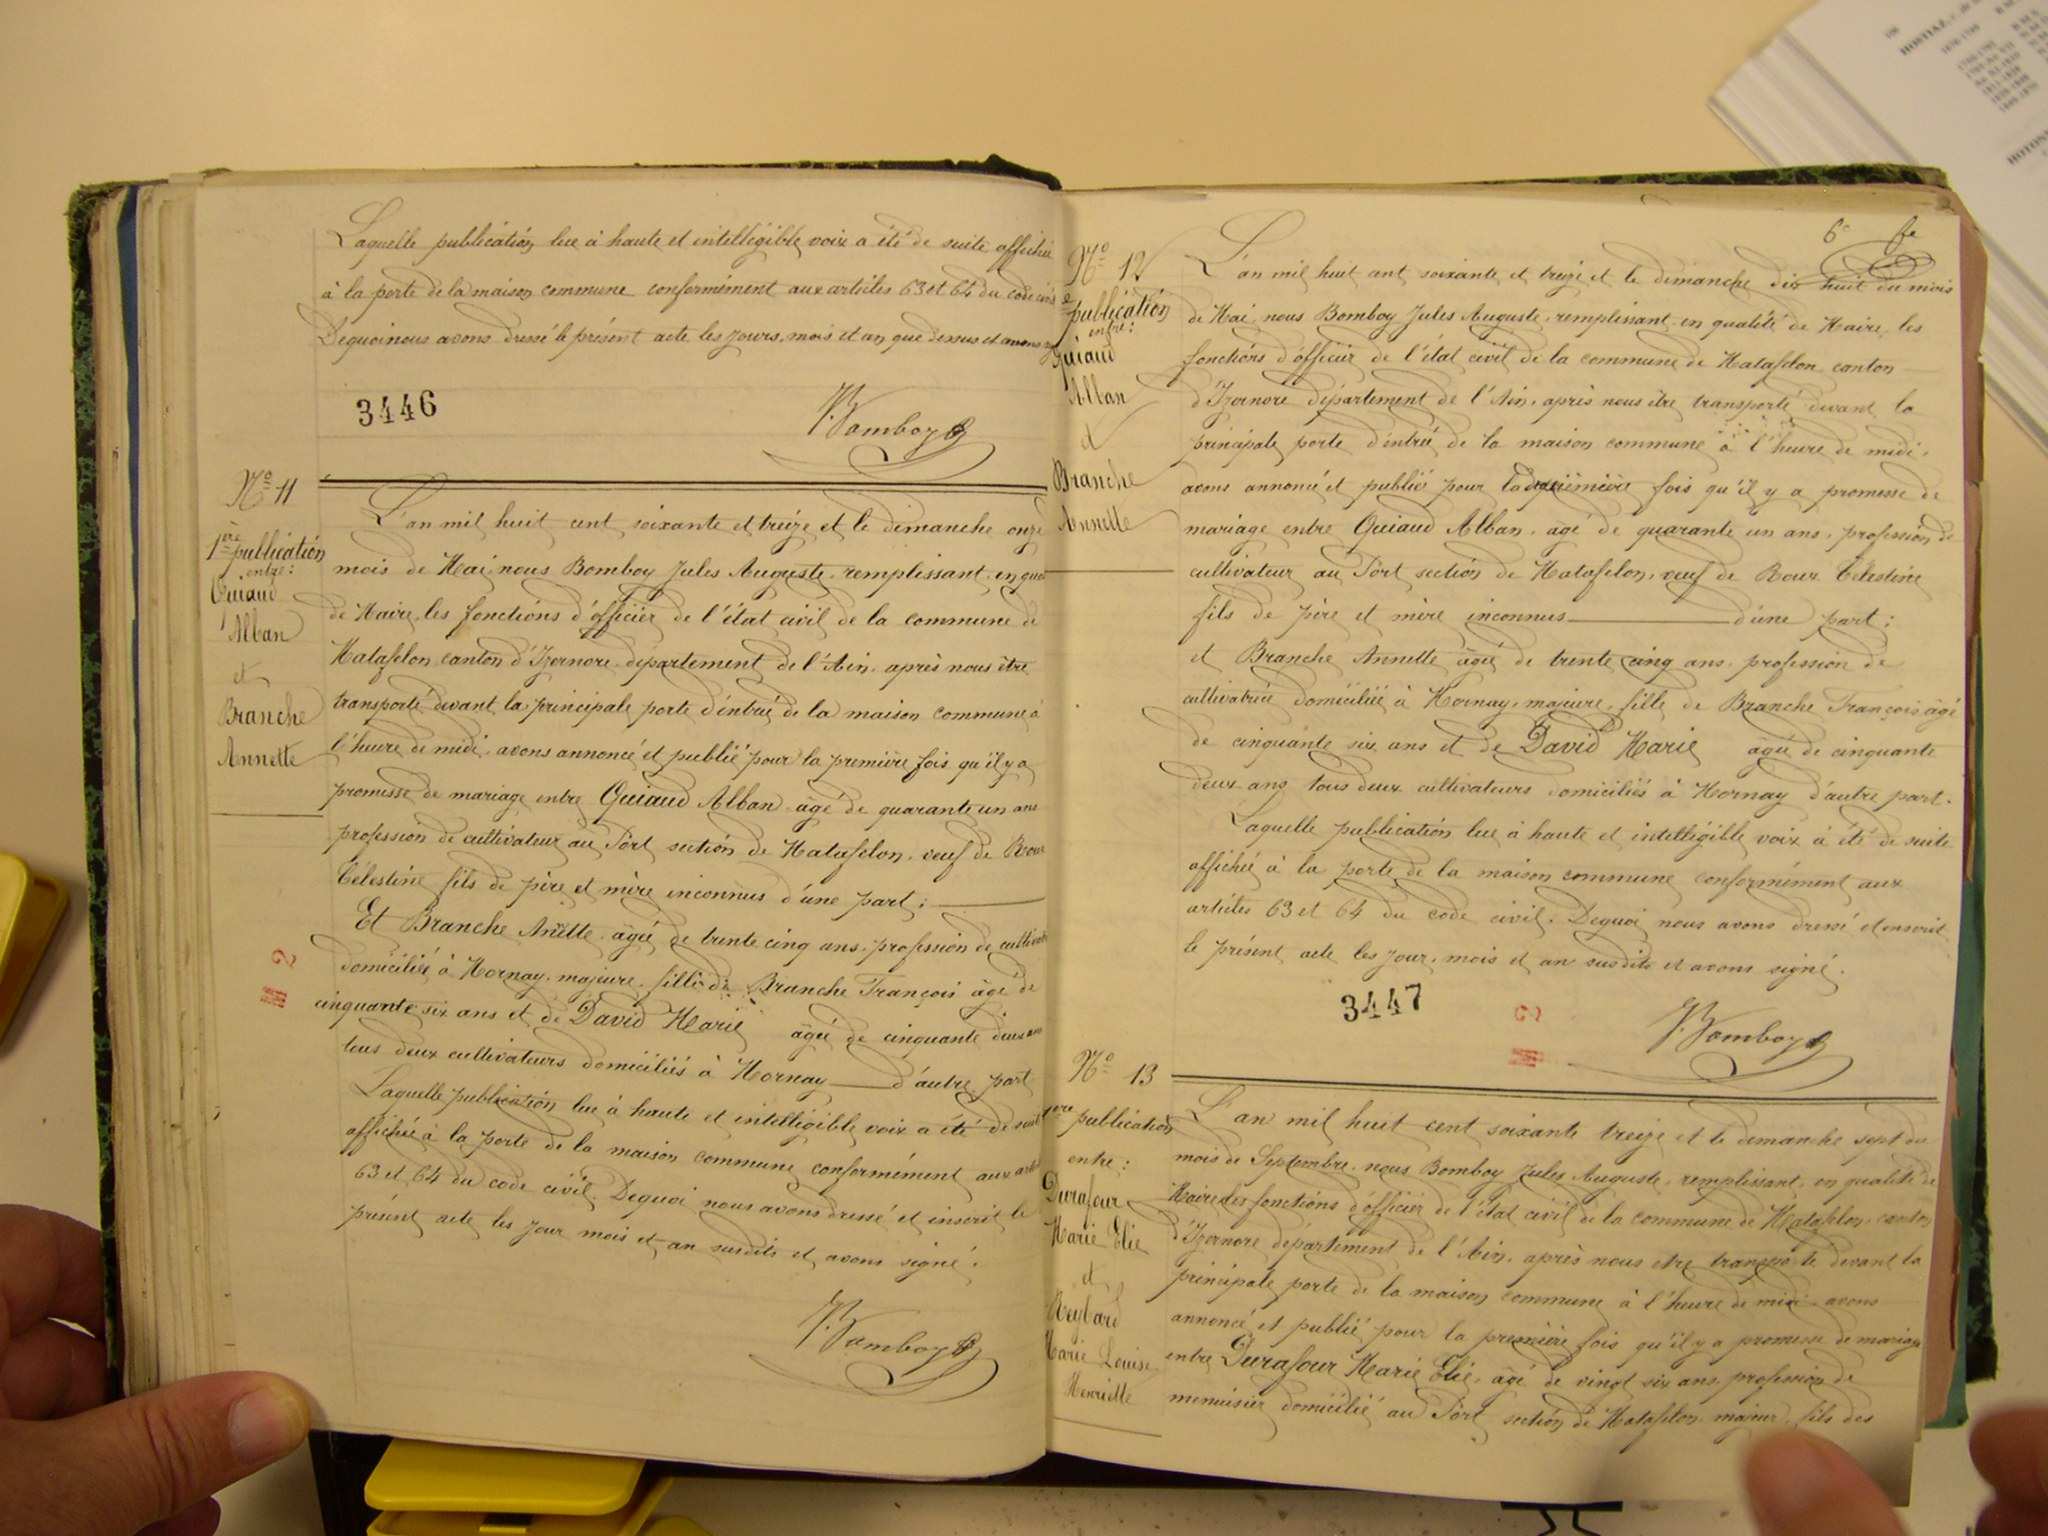 Laquelle publication lue à haute et intelligible voix a été de suite affichée
à la porte de la maison commune conformément aux articles 63 et 64 du code civil
Dequoi nous avons dressé le présent acte les jours, mois et an que dessus et avons
3446
J. Bomboy
No 11
1ère publication
entre:
Quiaud
Alban
et
Branche
Annette
L'an mil huit cent soixante et treize et le dimanche onze
mois de Mai, nous Bomboy Jules Auguste, remplissant, en qua
de Maire, les fonctions d'officier de l'état civil de la commune de
Matafelon canton d'Izernore département de l'Ain, après nous être
transporté devant la principale porte d'entrée de la maison commune à
l'heure de midi, avons annoncé et publié pour la première fois qu'il y a
promesse de mariage entre Quiaud Alban âgé de quarante un ans
profession de cultivateur au Port section de Matafelon, veuf de Roux
Célestine fils de père et mère inconnus d'une part;
Et Branche Anette, âgée de trente cinq ans, profession de cultivat
domiciliée à Mornay, majeure, fille de Branche François âgé de
cinquante six ans et de David Marie âgée de cinquante deux ans
tous deux cultivateurs domiciliés à Mornay d'autre part
Laquelle publication lue à haute et intelligible voix a été de suite
affichée à la porte de la maison commune conformément aux art
63 et 64 du code civil. Dequoi nous avons dressé et inscrit le
présent acte les jour mois et an susdits et avons signé.
J. Bomboy
6e fe
No 12
e publication
entre:
Quiaud
Alban
et
Branche
Annette
L'an mil huit cent soixante et treize et le dimanche dix huit du mois
de Mai, nous Bomboy Jules Auguste, remplissant en qualité de Maire, les
fonctions d'officier de l'état civil de la commune de Matafelon canton
d'Izernore département de l'Ain, après nous être transporté devant la
principale porte d'entrée de la maison commune à l'heure de midi,
avons annoncé et publié pour la deuxième fois qu'il y a promesse de
mariage entre Quiaud Alban, âgé de quarante un ans, profession de
cultivateur au Port section de Matafelon, veuf de Roux Célestine
fils de père et mère inconnus d'une part;
et Branche Annette âgée de trente cinq ans, profession de
cultivatrice domiciliée à Mornay, majeure, fille de Branche François âgé
de cinquante six ans et de David Marie âgée de cinquante
deux ans tous deux cultivateurs domiciliés à Mornay d'autre part.
Laquelle publication lue à haute et intelligible voix à été de suite
affichée à la porte de la maison commune conformément aux
articles 63 et 64 du code civil. Dequoi nous avons dressé et inscrit
le présent acte les jour, mois et an susdits et avons signé.
3447
J. Bomboy
No 13
1ere publication
entre:
Durafour
Marie Elie
et
Reybard
Marie Louise
Henriette
L'an mil huit cent soixante treize et le dimanche sept du
mois de Septembre, nous Bomboy Jules Auguste, remplissant, en qualité de
Maire les fonctions d'officier de l'état civil de la commune de Matafelon, canton
d'Izernore département de l'Ain, après nous etre transporté devant la
principale porte de la maison commune à l'heure de midi avons
annoncé et publié pour la première fois qu'il y a promesse de mariage
entre Durafour Marie Elie, âgé de vingt six ans, profession de
menuisier domicilié au Port section de Matafelon, majeur, fils des